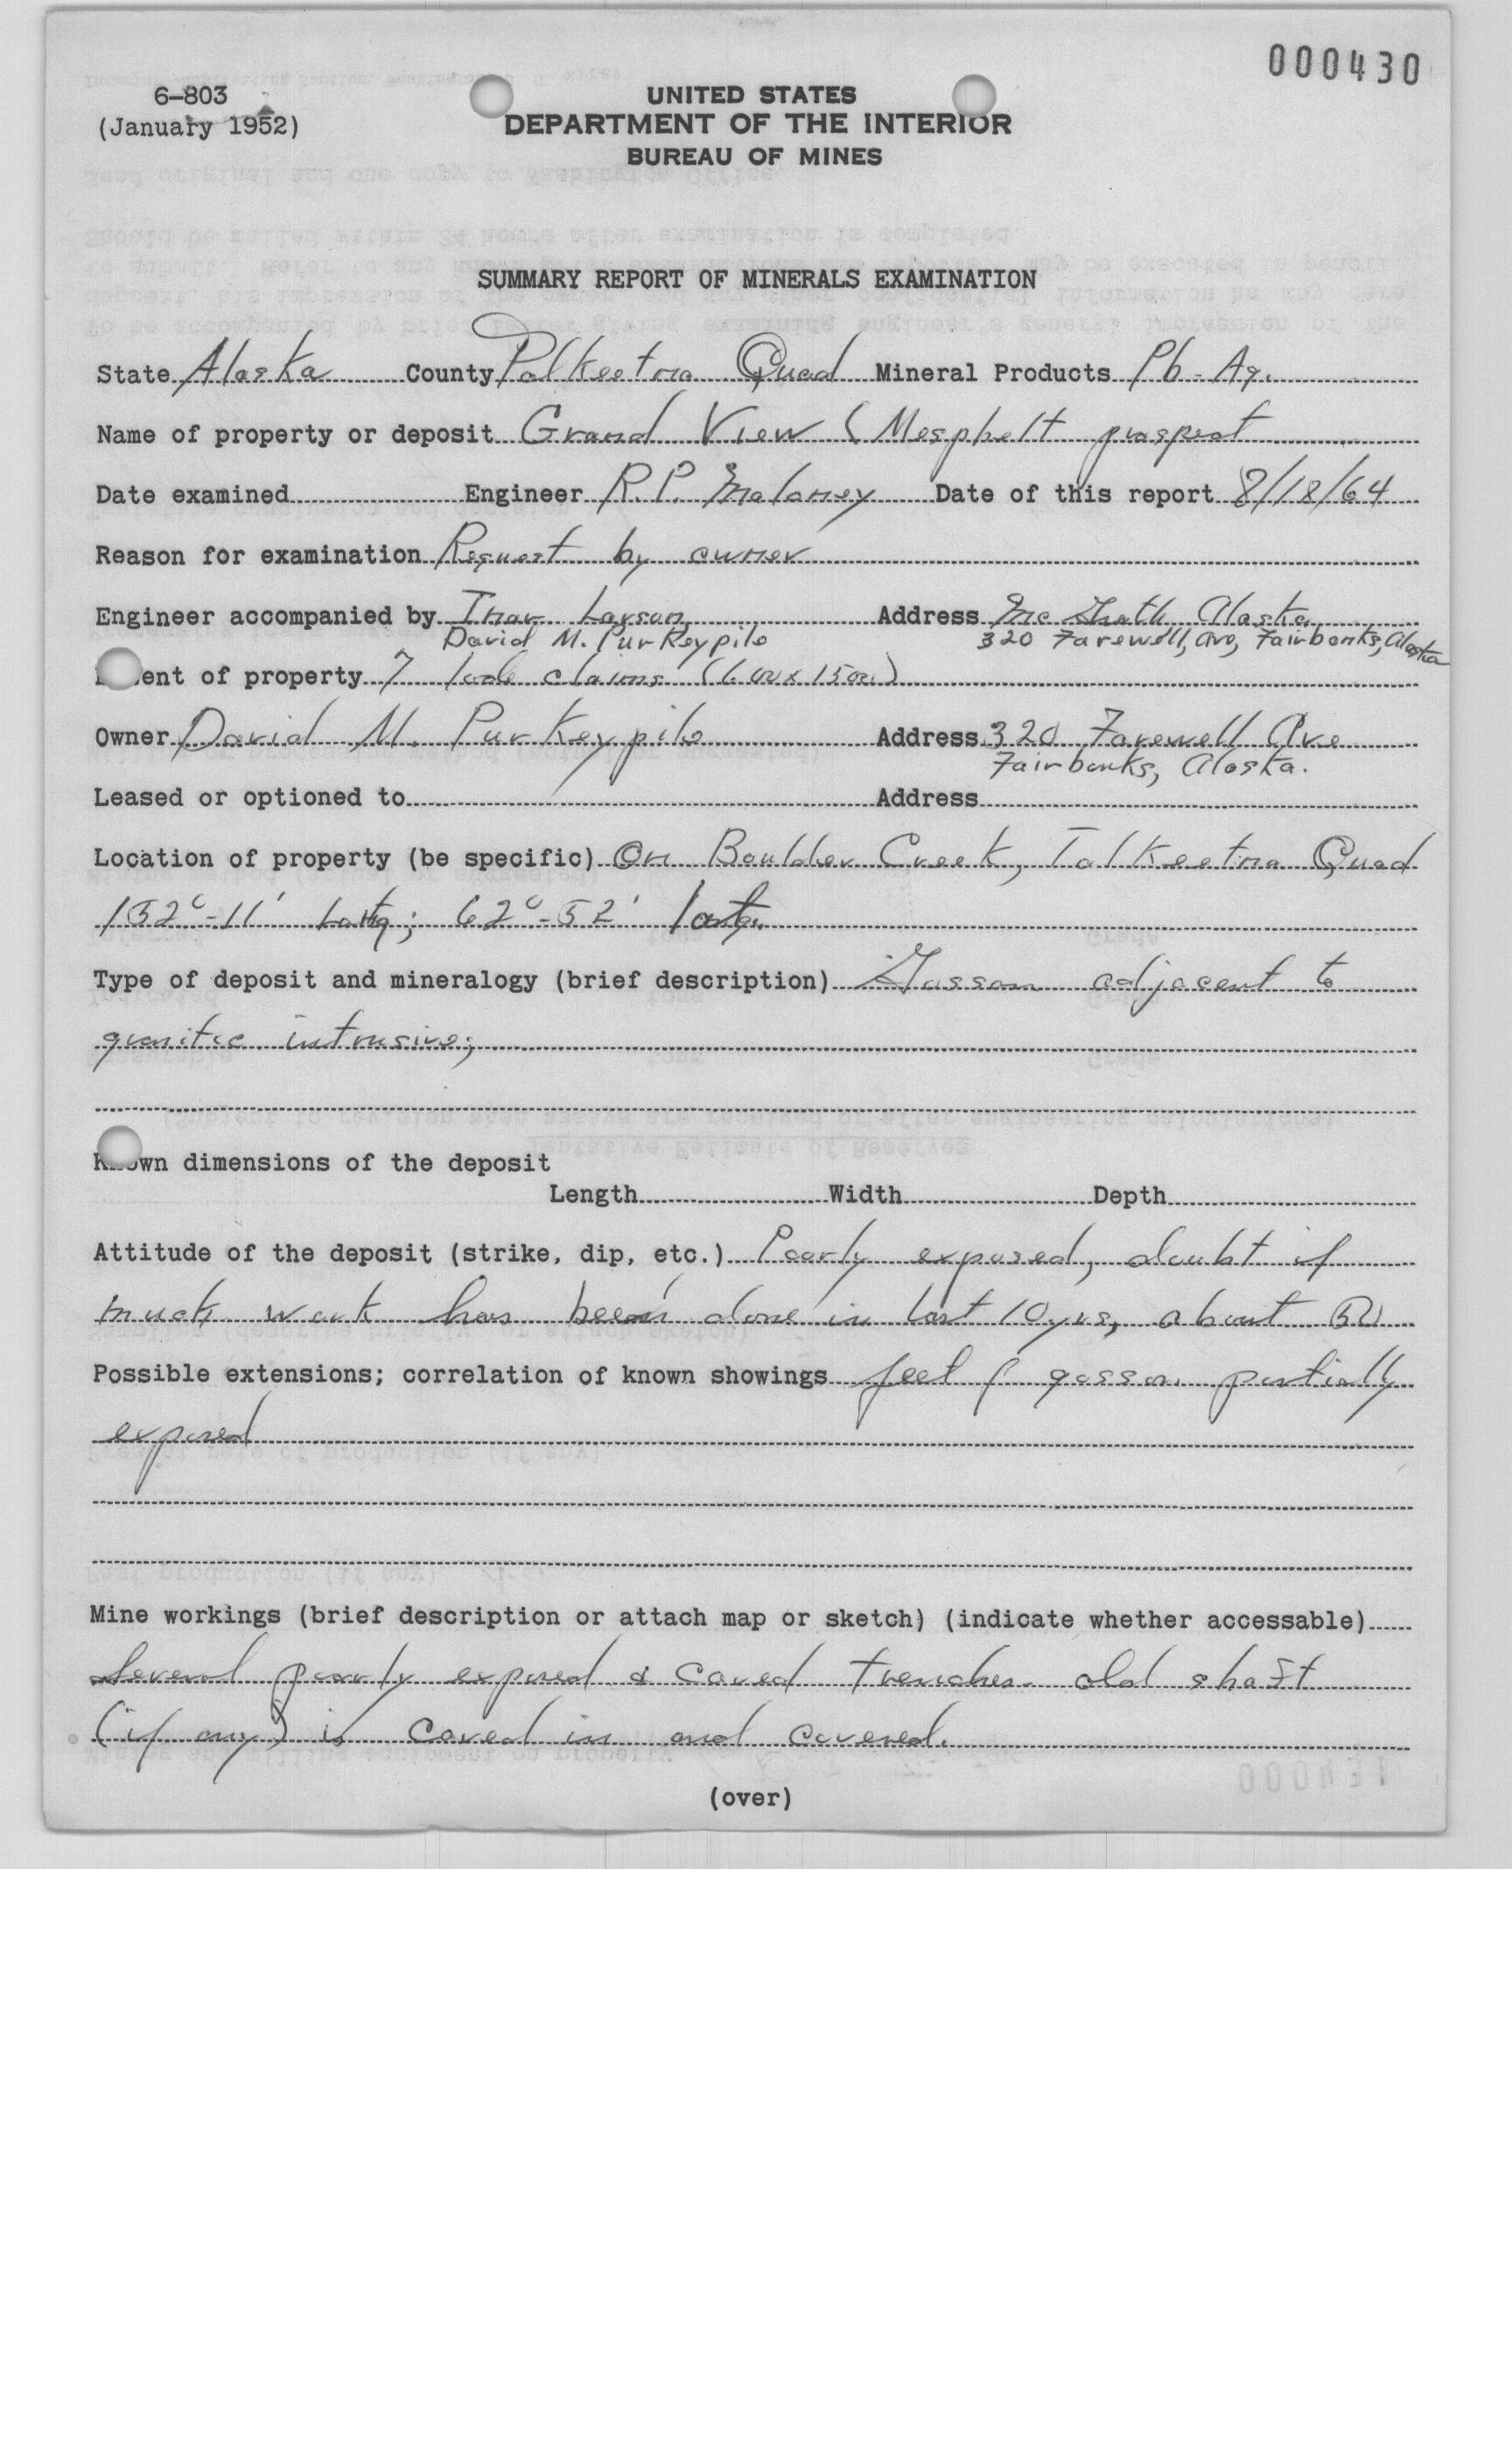 000430
6-803
(January 1952)
UNITED STATES
DEPARTMENT OF THE INTERIOR
BUREAU OF MINES
SUMMARY REPORT OF MINERALS EXAMINATION
State Alaska County Talkeetna Quad Mineral Products Pb-Ag.
Name of property or deposit Grand View (Mespelt prospect
Date examined Engineer R.P. Maloney Date of this report 8/18/64
Reason for examination Request by owner
Engineer accompanied by Address Mc Grath Alaska
David M. Purkeypile 320 Farewell, Ave, Fairbanks, Alaska
ent of property 7 lode claims (600x1500)
Owner David M. Purkeypile Address 320 Farewell Ave
Fairbanks, Alaska.
Leased or optioned to Address
Location of property (be specific) On Boulder Creek, Talkeetna Quad
152°-11' Long; 62°-52' lat.
Type of deposit and mineralogy (brief description) Gossan adjacent to
granitic intrusive;
Known dimensions of the deposit
Length Width Depth
Attitude of the deposit (strike, dip, etc.) Poorly exposed, doubt if
much work has been done in last 10 yrs, about 50
Possible extensions; correlation of known showings feet of gossan partially
exposed
Mine workings (brief description or attach map or sketch) (indicate whether accessable)
Several poorly exposed & caved trenches. old shaft
(if any) is caved in and covered.
(over)